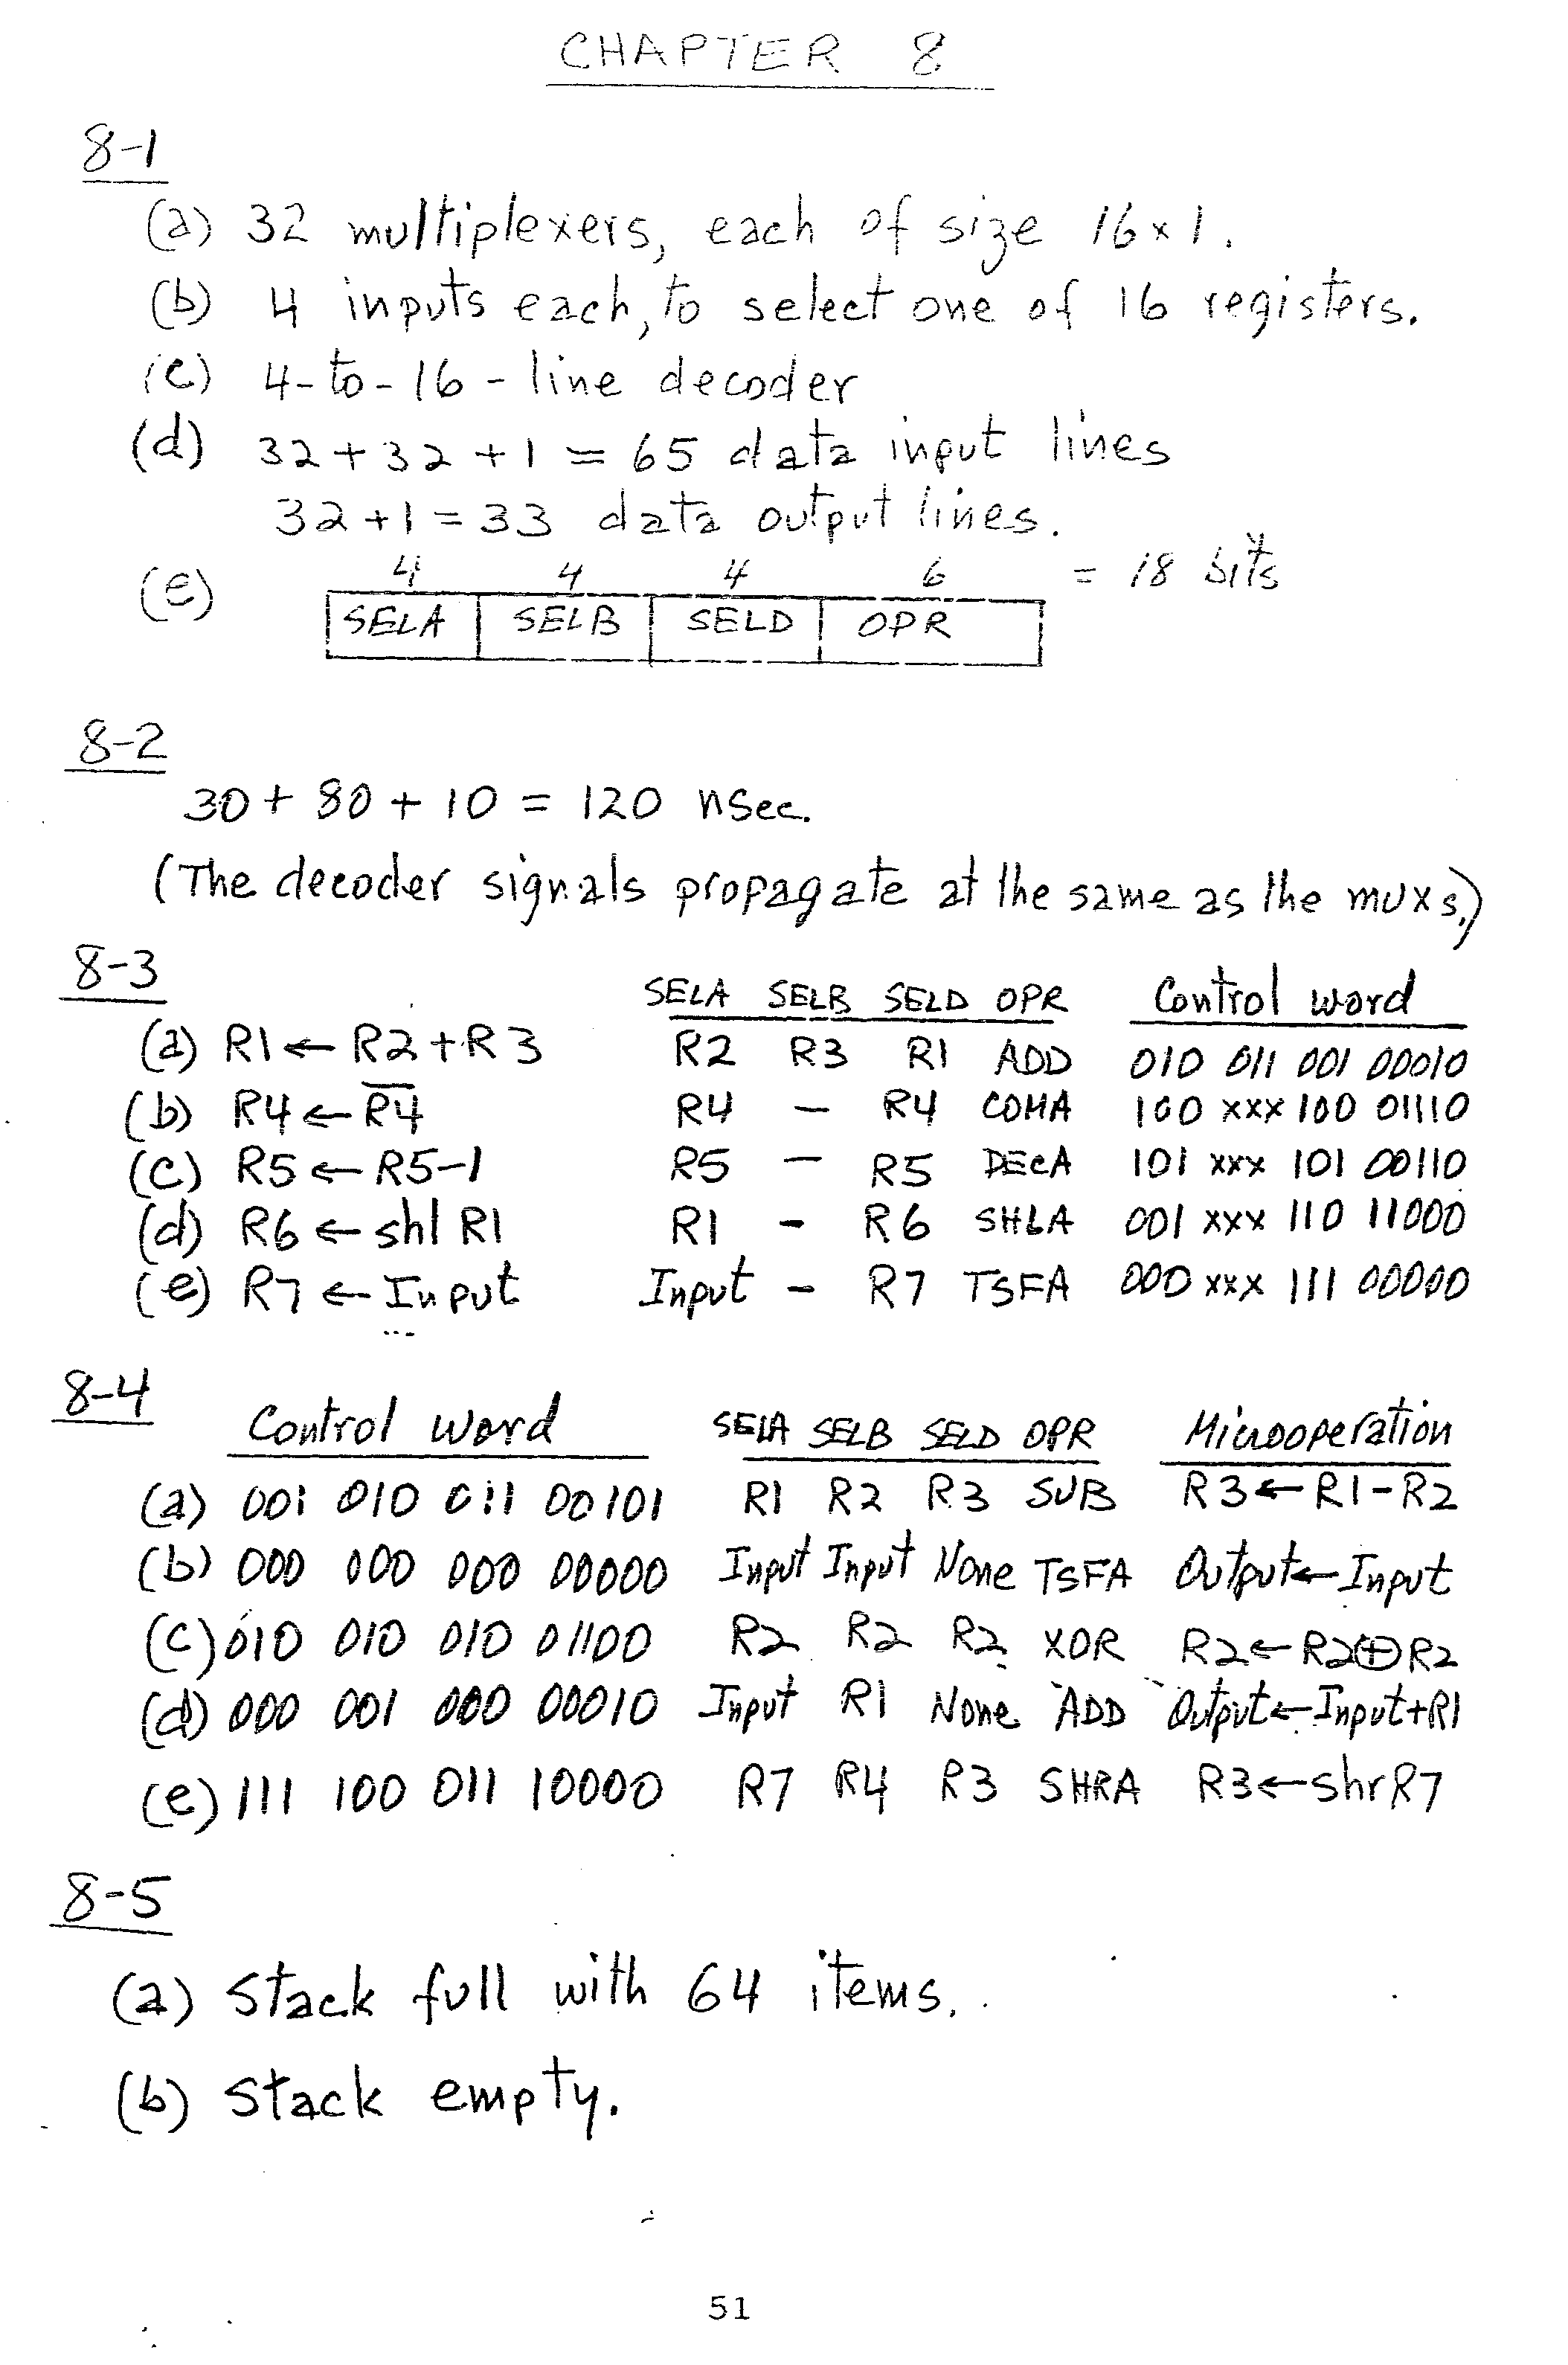 CHAPTER 8
8-1
(a) 32 multiplexers, each of size 16x1.
(b) 4 inputs each, to select one of 16 registers.
(c) 4-to-16-line decoder
(d) 32+32+1=65 data input lines
32+1=33 data output lines.
4 4 4 6 = 18 bits
(e) SELA SELB SELD OPR
8-2
30+80+10=120 nsec.
(The decoder signals propagate at the same as the muxs.)
8-3 SELA SELB SELD OPR Control word
(a) R1←R2+R3 R2 R3 R1 ADD 010 011 001 00010
(b) R4←R̅4̅ R4 – R4 COMA 100 xxx 100 01110
(c) R5←R5-1 R5 – R5 DECA 101 xxx 101 00110
(d) R6←shl R1 R1 – R6 SHLA 001 xxx 110 11000
(e) R7←Input Input – R7 TSFA 000 xxx 111 00000
8-4 Control word SELA SELB SELD OPR Microoperation
(a) 001 010 011 00101 R1 R2 R3 SUB R3←R1-R2
(b) 000 000 000 00000 Input Input None TSFA Output←Input
(c) 010 010 010 01100 R2 R2 R2 XOR R2←R2⊕R2
(d) 000 001 000 00010 Input R1 None ADD Output←Input+R1
(e) 111 100 011 10000 R7 R4 R3 SHRA R3←shrR7
8-5
(a) Stack full with 64 items.
(b) Stack empty.
51